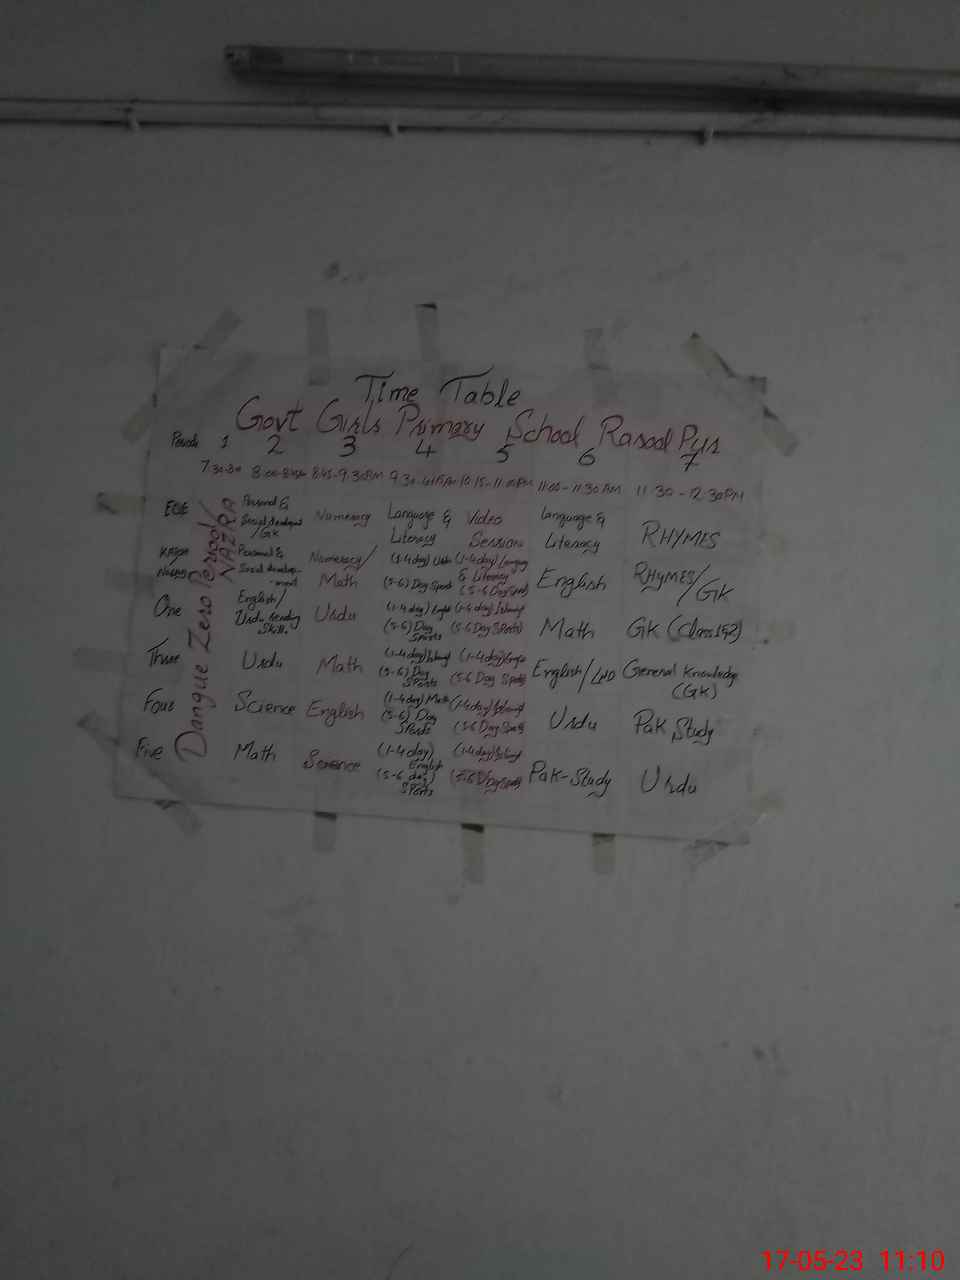 Time Table
Govt Girls Primary School Rasool Pur
Periods 1 2 3 4 5 6 7
7:30-8:00 8:00-8:45 8:45-9:30AM 9:30- 10:15-11:00PM 11:00-11:30AM 11:30-12:30PM
Dangue Zero Period/
NAZRA
ECE Personal & Social develop /GK Numeracy Language & Literacy Video Session Language & Literacy RHYMES
Personal & Social develop-ment Numeracy/ Math (1-4 day) Urdu (5-6) Day Sports (1-4 day) & Literacy (5-6 Day Sports) English RHYMES/ GK
One English/ Urdu reading Skill. Urdu (1-4 day) (5-6) Day Sports (1-4 day) (5-6 Day Sports) Math GK (Class 1&2)
Three Urdu Math (1-4 day) (5-6) Day Sports (1-4 day) (5-6 Day Sports) English/LND General Knowledge (GK)
Four Science English (1-4 day) Math (5-6) Day Sports (1-4 day) (5-6 Day Sports) Urdu Pak Study
Five Math Science (1-4 day) English (5-6 day) Sports (1-4 day) (5-6 Day Sports) Pak-Study Urdu
17-05-23 11:10